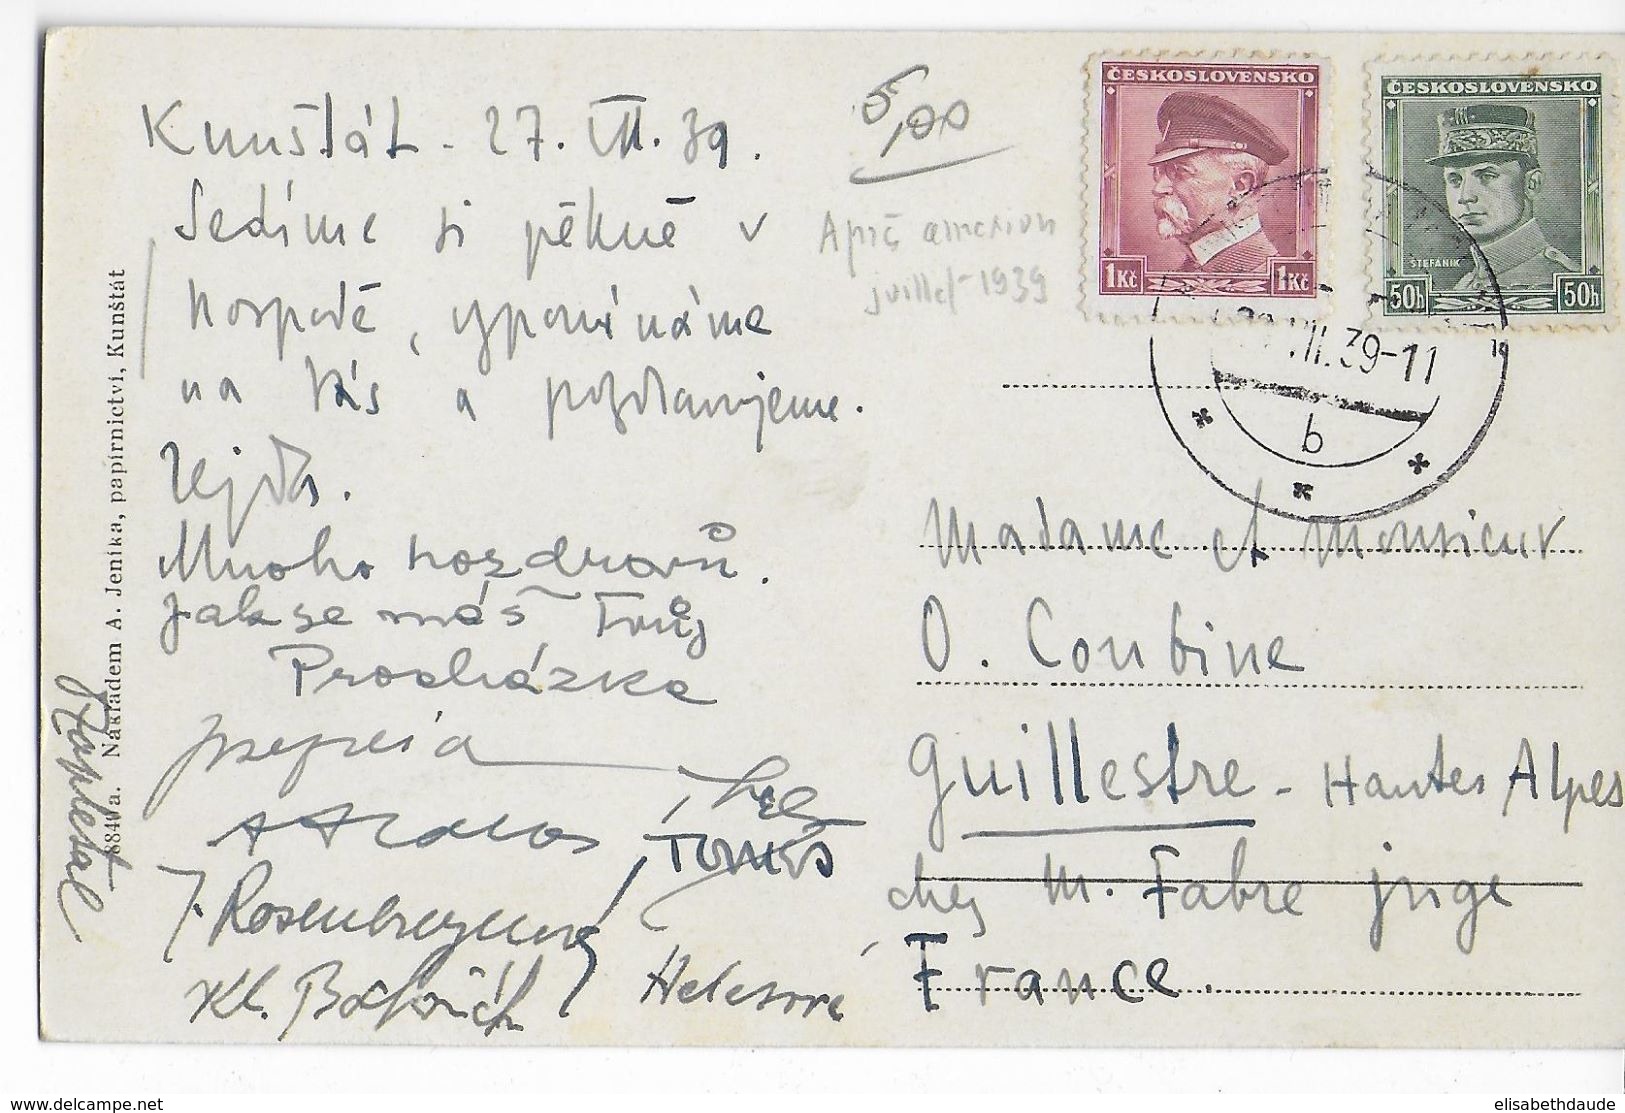 Kunštát - 27. VII. 39.
Sedíme si pěkně v
hospodě, vzpomínáme
na Vás a pozdravujeme.
Vejda.
Mnoho pozdravů.
Jak se máš Tvůj
Procházka
Zapletal
5,00
Après annexion
juillet 1939
ČESKOSLOVENSKO
1Kč 1Kč
ČESKOSLOVENSKO
ŠTEFÁNIK
50h 50h
.VII.39-11
b
Madame et Monsieur
O. Coubine
Guillestre - Hautes Alpes
chez M. Fabre juge
France.
Nákladem A. Jeníka, papírnictví, Kunštát
www.delcampe.net
elisabethdaude